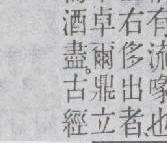 有流喙也
右侈出者
卓爾鼎立
酒盡。古經